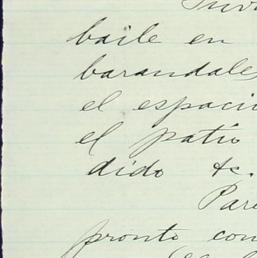 baile en
barandale
el espaci
el patio
dido &c.
Pare
pronto con